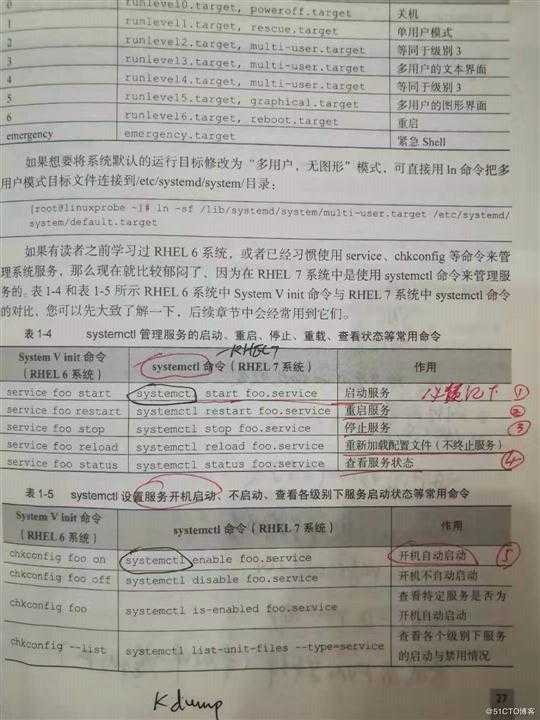 0 runlevel0.target, poweroff.target 关机
1 runlevel1.target, rescue.target 单用户模式
2 runlevel2.target, multi-user.target 等同于级别 3
3 runlevel3.target, multi-user.target 多用户的文本界面
4 runlevel4.target, multi-user.target 等同于级别 3
5 runlevel5.target, graphical.target 多用户的图形界面
6 runlevel6.target, reboot.target 重启
emergency emergency.target 紧急 Shell
如果想要将系统默认的运行目标修改为“多用户，无图形”模式，可直接用 ln 命令把多
用户模式目标文件连接到/etc/systemd/system/目录：
[root@linuxprobe ~]# ln -sf /lib/systemd/system/multi-user.target /etc/systemd/
system/default.target
如果有读者之前学习过 RHEL 6 系统，或者已经习惯使用 service、chkconfig 等命令来管
理系统服务，那么现在就比较郁闷了，因为在 RHEL 7 系统中是使用 systemctl 命令来管理服
务的。表 1-4 和表 1-5 所示 RHEL 6 系统中 System V init 命令与 RHEL 7 系统中 systemctl 命令
的对比，您可以先大致了解一下，后续章节中会经常用到它们。
表 1-4 systemctl 管理服务的启动、重启、停止、重载、查看状态等常用命令
RHEL7
System V init 命令
（RHEL 6 系统） systemctl 命令（RHEL 7 系统） 作用
service foo start systemctl start foo.service 启动服务 ①
service foo restart systemctl restart foo.service 重启服务 ②
service foo stop systemctl stop foo.service 停止服务 ③
service foo reload systemctl reload foo.service 重新加载配置文件（不终止服务）
service foo status systemctl status foo.service 查看服务状态 ④
表 1-5 systemctl 设置服务开机启动、不启动、查看各级别下服务启动状态等常用命令
System V init 命令
（RHEL 6 系统） systemctl 命令（RHEL 7 系统） 作用
chkconfig foo on systemctl enable foo.service 开机自动启动 ⑤
chkconfig foo off systemctl disable foo.service 开机不自动启动
chkconfig foo systemctl is-enabled foo.service 查看特定服务是否为
开机自动启动
chkconfig --list systemctl list-unit-files --type=service 查看各个级别下服务
的启动与禁用情况
27
Kdump
@51CTO博客